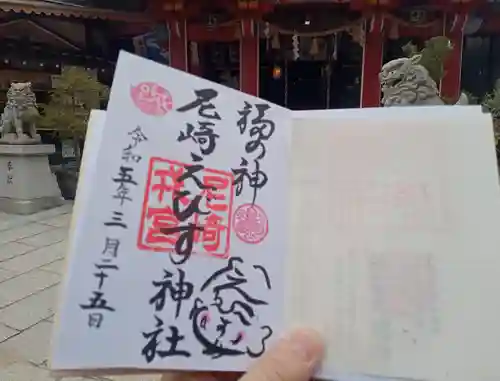 福の神
尼崎えびす神社
令和五年三月二十五日
尼崎
戎宮